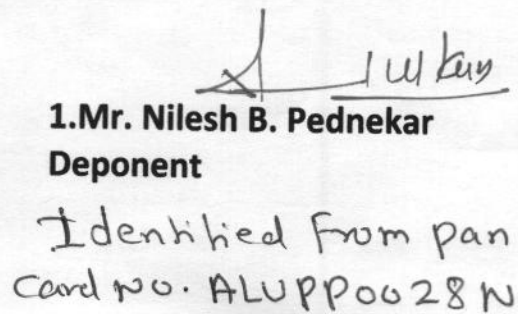 1.Mr. Nilesh B. Pednekar
Deponent
Identified From pan
Card No. ALUPP0028N